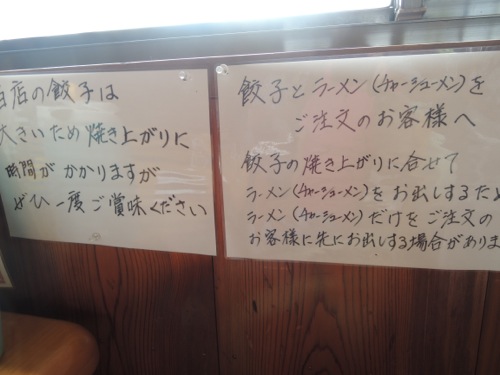 当店の餃子は
大きいため焼き上がりに
時間がかかりますが
ぜひ一度ご賞味ください
餃子とラーメン(チャーシューメン)を
ご注文のお客様へ
餃子の焼き上がりに合せて
ラーメン(チャーシューメン)をお出しするため
ラーメン(チャーシューメン)だけをご注文の
お客様に先にお出しする場合がありま